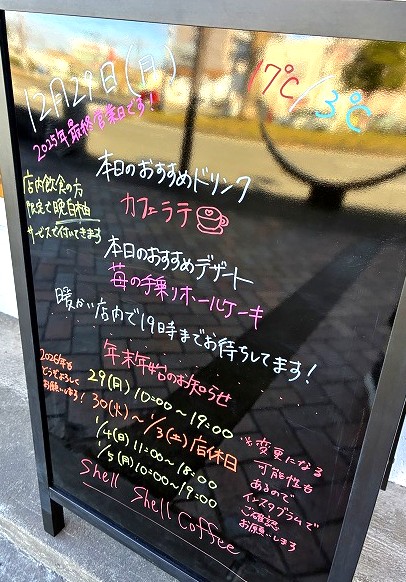 12月29日(月)
17℃/3℃
2025年最終営業日です!
本日のおすすめドリンク
カフェラテ
店内飲食の方
限定で晩白柚
サービスで付いてきます
本日のおすすめデザート
苺の手乗りホールケーキ
暖かい店内で19時までお待ちしてます!
年末年始のお知らせ
29(月) 10:00〜19:00
30(火)〜1/3(土)店休日
1/4(日) 11:00〜18:00
1/5(月) 10:00〜19:00
2026年も
どうぞよろしく
お願いします!
※変更になる
可能性も
あるので
インスタグラムで
ご確認
お願いします
Shell Shell Coffee